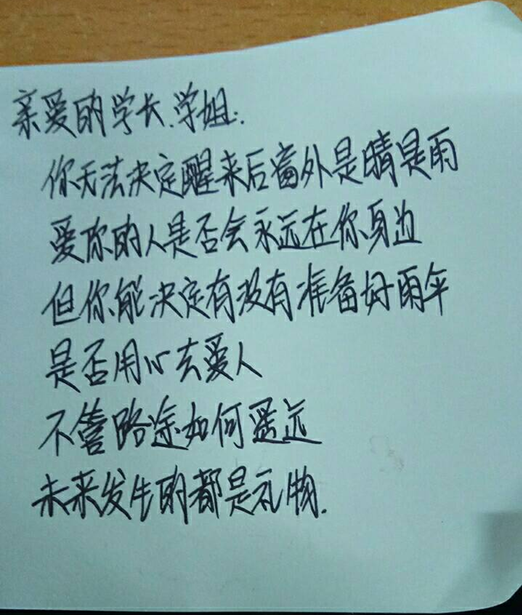 亲爱的学长.学姐:
你无法决定醒来后窗外是晴是雨
爱你的人是否会永远在你身边
但你能决定有没有准备好雨伞
是否用心去爱人
不管路途如何遥远
未来发生的都是礼物.